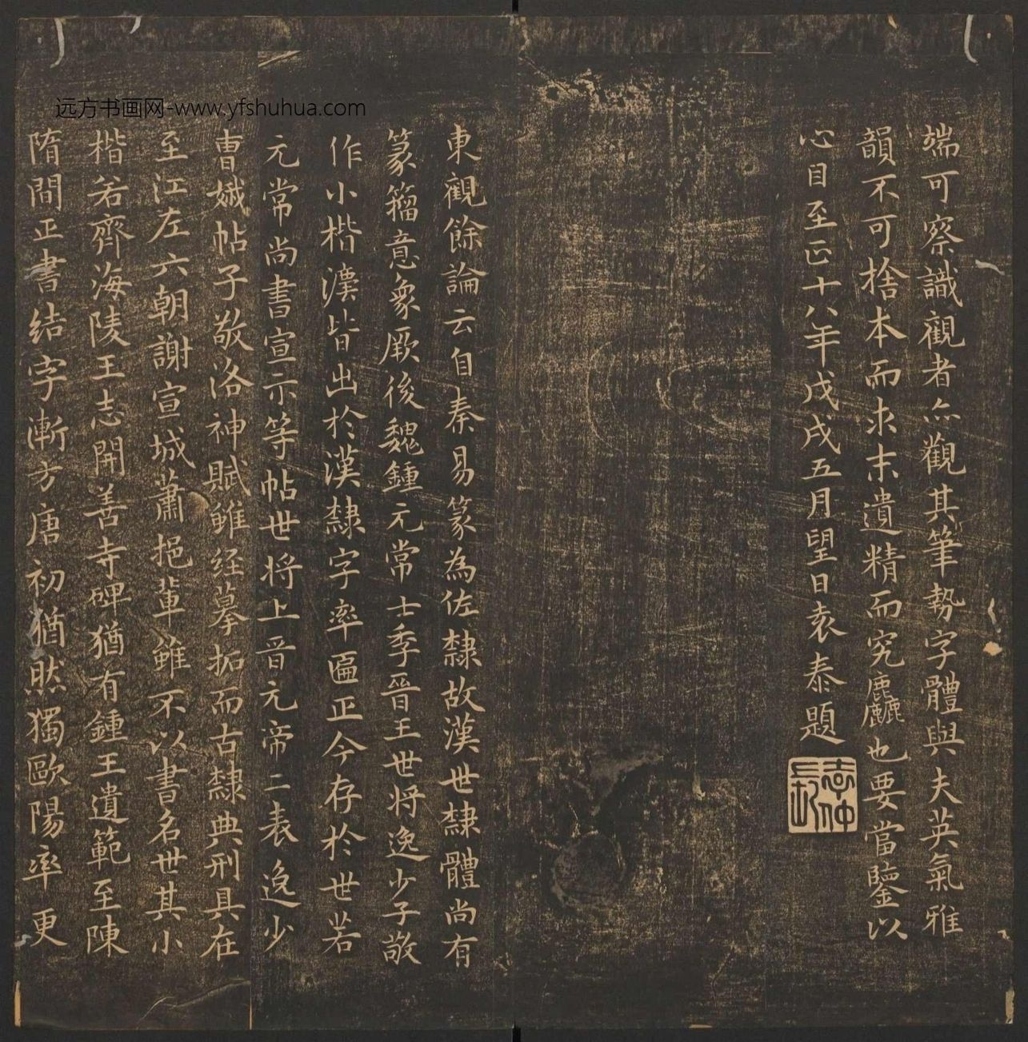 远方书画网-www.yfshuhua.com
端可察識觀者亦觀其筆勢字體與夫英氣雅
韻不可捨本而求末遺精而究麤也要當鑒以
心目至正十八年戊戌五月望日袁泰題
東觀餘論云自秦易篆為佐隸故漢世隸體尚有
篆籀意象厥後魏鍾元常士季晉王世将逸少子敬
作小楷瀍皆出於漢隸字率匾正今存於世若
元常尚書宣示等帖世将上晉元帝二表逸少
曹娥帖子敬洛神賦雖经摹拓而古隸典刑具在
至江左六朝謝宣城蕭挹輩雖不以書名世其小
楷若齊海陵王志開善寺碑猶有鍾王遺範至陳
隋間正書结字漸方唐初猶然獨歐陽率更